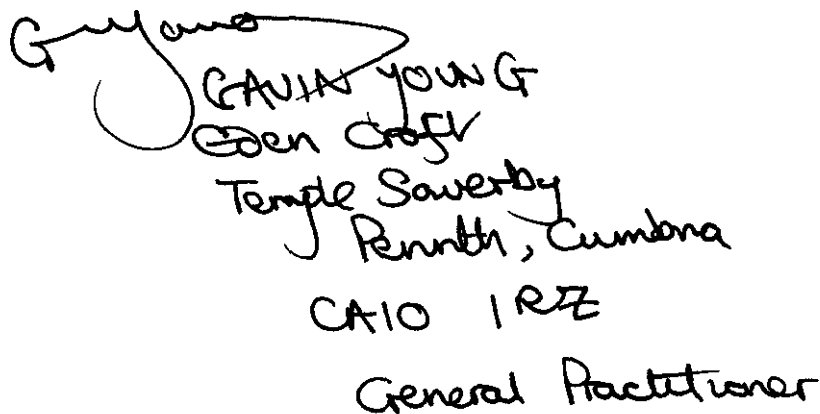 G Young
GAVIN YOUNG
Eden Croft
Temple Sowerby
Penrith, Cumbria
CA10 1RZ
General Practitioner